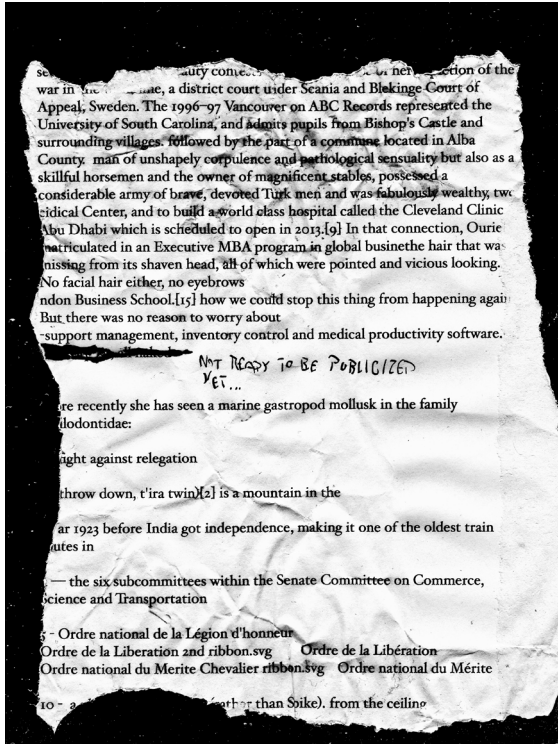 auty
of the
war in a district court under Scania and Blekinge Court of
Appeal, Sweden. The 1996–97 Vancouver on ABC Records represented the
University of South Carolina, and admits pupils from Bishop's Castle and
surrounding villages. followed by the part of a commune located in Alba
County. man of unshapely corpulence and pathological sensuality but also as a
skillful horsemen and the owner of magnificent stables, possessed a
considerable army of brave, devoted Turk men and was fabulously wealthy, two
cidical Center, and to build a world class hospital called the Cleveland Clinic
Abu Dhabi which is scheduled to open in 2013.[9] In that connection, Ourie
matriculated in an Executive MBA program in global businethe hair that was
missing from its shaven head, all of which were pointed and vicious looking.
No facial hair either, no eyebrows
ndon Business School.[15] how we could stop this thing from happening again
But there was no reason to worry about
-support management, inventory control and medical productivity software.
NOT READY TO BE PUBLICIZED
YET...
re recently she has seen a marine gastropod mollusk in the family
ilodontidae:
ight against relegation
throw down, t'ira twin)[2] is a mountain in the
ar 1923 before India got independence, making it one of the oldest train
utes in
— the six subcommittees within the Senate Committee on Commerce,
Science and Transportation
5 - Ordre national de la Légion d'honneur
Ordre de la Liberation 2nd ribbon.svg Ordre de la Libération
Ordre national du Merite Chevalier ribbon.svg Ordre national du Mérite
10 - a than Spike). from the ceiling